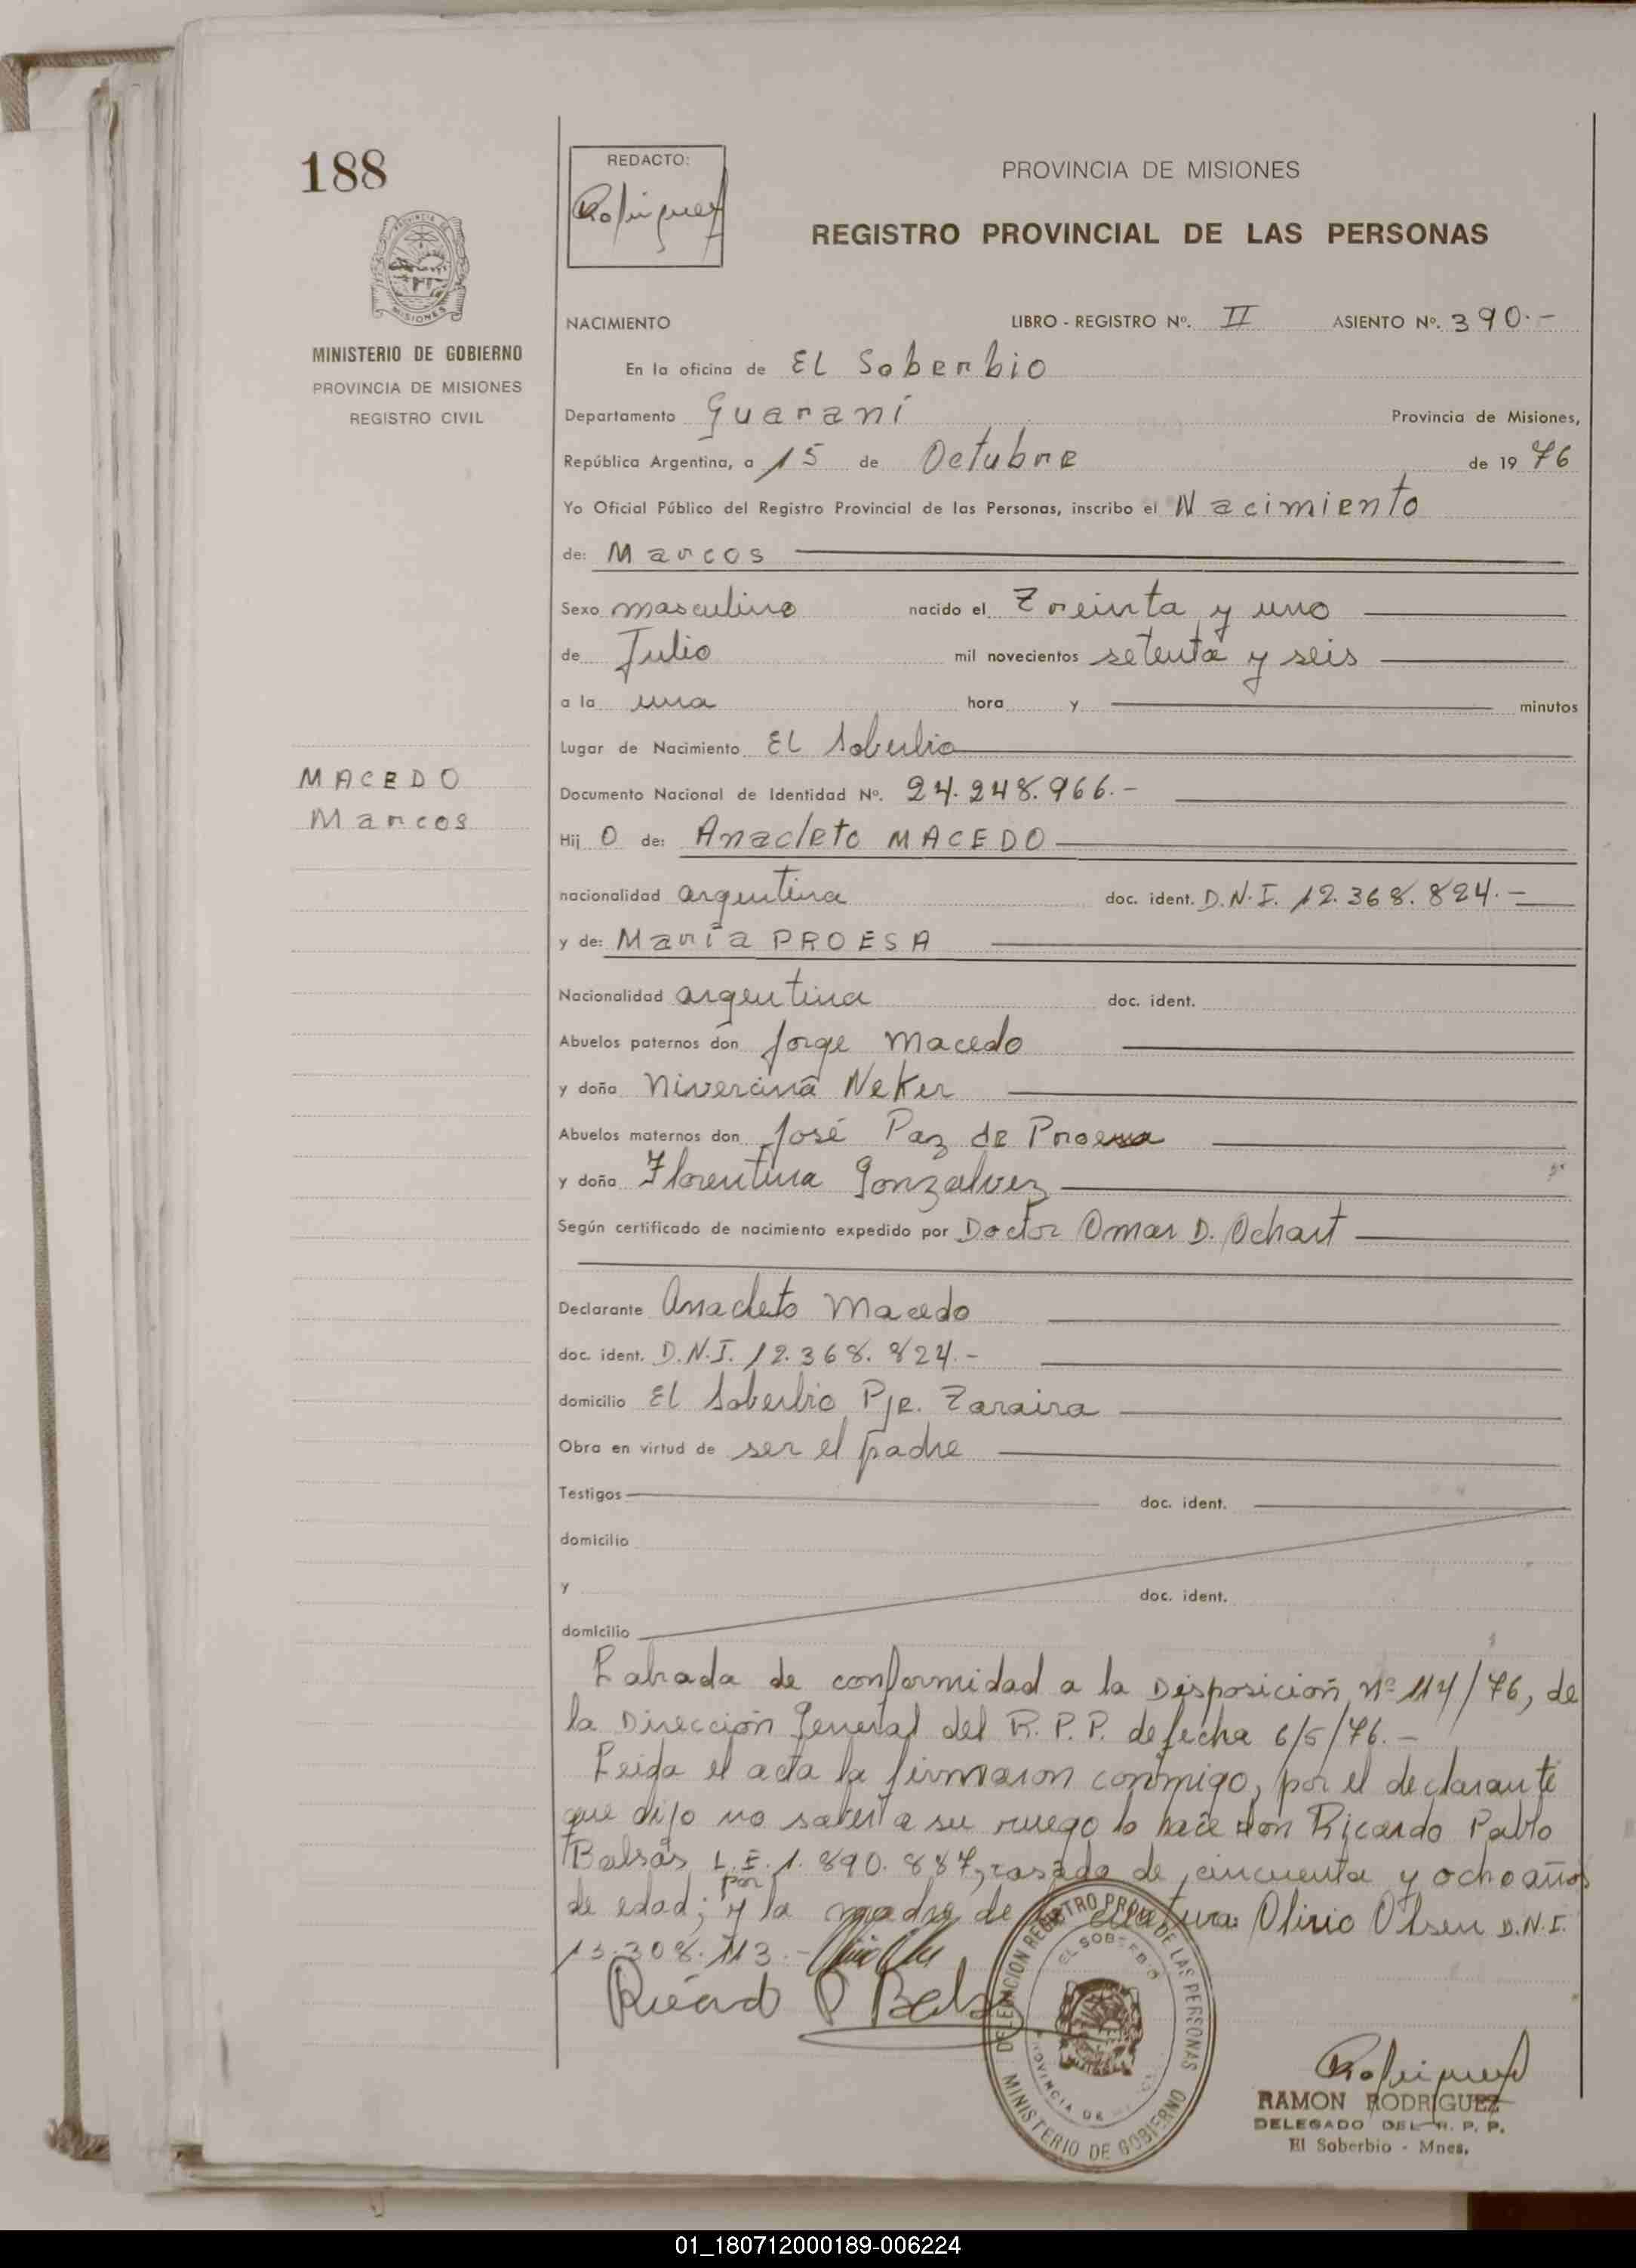 188
REDACTO:
Rodriguez
PROVINCIA DE MISIONES
REGISTRO PROVINCIAL DE LAS PERSONAS
MINISTERIO DE GOBIERNO
PROVINCIA DE MISIONES
REGISTRO CIVIL
NACIMIENTO LIBRO - REGISTRO Nº. II ASIENTO Nº. 390.-
En la oficina de EL Soberbio
Departamento Guaraní Provincia de Misiones,
República Argentina, a 15 de Octubre de 19 76
Yo Oficial Público del Registro Provincial de las Personas, inscribo el Nacimiento
de: Marcos
Sexo masculino nacido el Treinta y uno
de Julio mil novecientos setenta y seis
a la una hora y minutos
Lugar de Nacimiento EL Soberbio
MACEDO
Marcos
Documento Nacional de Identidad Nº. 24.248.966.-
Hij o de: Anacleto MACEDO
nacionalidad argentina doc. ident. D.N.I. 12.368.824.-
y de: María PROESA
Nacionalidad argentina doc. ident.
Abuelos paternos don Jorge Macedo
y doña Nivercina Neker
Abuelos maternos don José Paz de Proessa
y doña Florentina Gonzalvez
Según certificado de nacimiento expedido por Doctor Omar D. Ochart
Declarante Anacleto Macedo
doc. ident. D.N.I. 12.368.824.-
domicilio El Soberbio Pje. Zaraira
Obra en virtud de ser el padre
Testigos doc. ident.
domicilio
y doc. ident.
domicilio
Labrada de conformidad a la Disposición Nº 114/76, de
la Dirección General del R.P.P. de fecha 6/5/76.-
Leida el acta la firmaron conmigo, por el declarante
que dijo no saber a su ruego lo hace don Ricardo Pablo
Balsas L.E. 1.890.887, casado de cincuenta y ocho años
de edad; y por la madre de la criatura: Olirio Olsen D.N.I.
13.308.113.-
Ricardo P Bals
DELEGACION REGISTRO PROV. DE LAS PERSONAS
EL SOBERBIO
PROVINCIA DE
MINISTERIO DE GOBIERNO
Rodriguez
RAMON RODRIGUEZ
DELEGADO DEL R. P. P.
El Soberbio - Mnes.
01_180712000189-006224